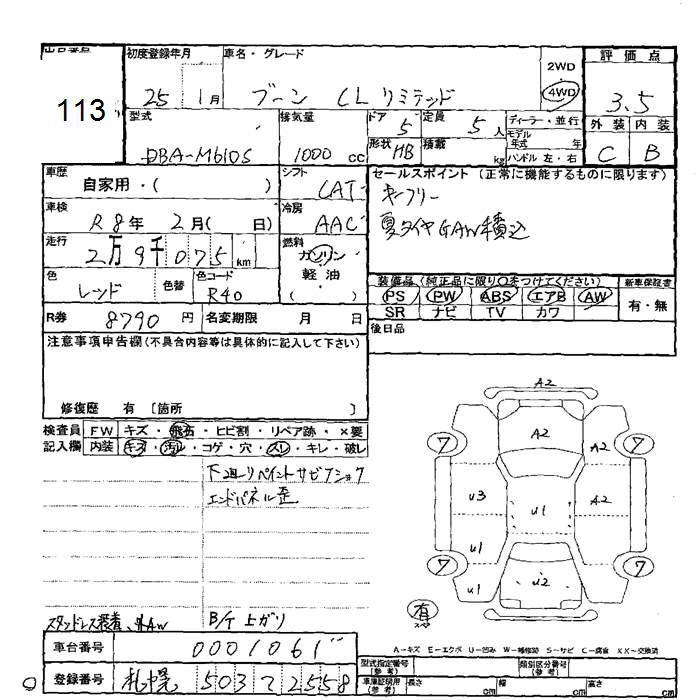 出品番号 初度登録年月 車名・グレード 評価点
113 25 1月 ブーン CL リミテッド 2WD 4WD 3.5
型式 排気量 ドア 5 定員 5人 ディーラー・並行 外装 内装
DBA-M610S 1000cc 形状 HB 積載 kg モデル年式 年 ハンドル 左・右 C B
車歴 シフト セールスポイント (正常に機能するものに限ります)
自家用・( ) CAT キーフリー
車検 冷房 夏タイヤGAW積込
R8年 2月( 日) AAC
走行 燃料
2万9千075km ガソリン
色 色替 色コード 軽油 装備品 (純正品に限り〇をつけてください) 新車保証書
レッド R40 ( ) PS PW ABS エアB AW 有・無
R券 8790円 名変期限 月 日 SR ナビ TV カワ
注意事項申告欄(不具合内容等は具体的に記入して下さい) 後日品
修復歴 有 [箇所 ]
検査員 FW キズ・飛石・ヒビ割・リペア跡・×要
記入欄 内装 キズ・汚れ・コゲ・穴・スレ・キレ・破レ
下廻りペイントサビフショク
エンドパネル歪
A2
A2 A2
7 7
U3 U1 A2
U1
7 7
U1 U2
有
スペア
スタッドレス装着、外AW B/T上ガリ
A-キズ E-エクボ U-凹み W-補修跡 S-サビ C-腐食 XX-交換済
車台番号 0001061 型式指定番号(参考) 類別区分番号(参考)
登録番号 札幌 503 て 2558 車庫証明用(参考) 長さ cm 幅 cm 高さ cm